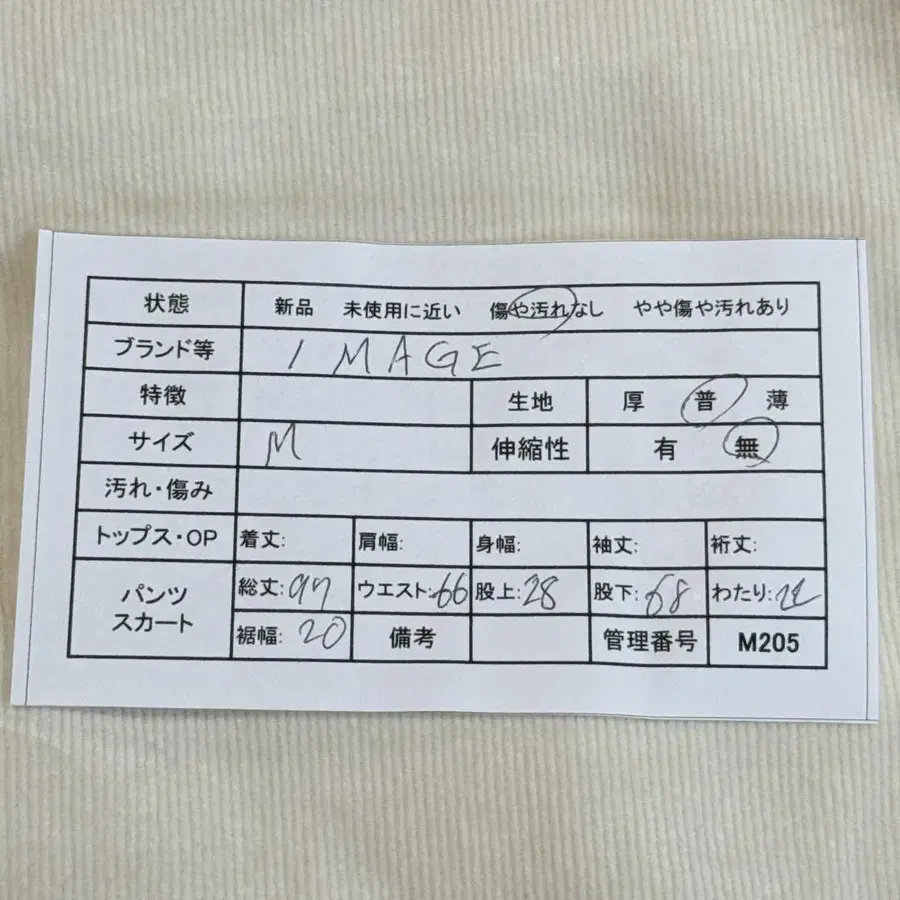 状態 新品 未使用に近い 傷や汚れなし やや傷や汚れあり
ブランド等 IMAGE
特徴 生地 厚 普 薄
サイズ M 伸縮性 有 無
汚れ・傷み
トップス・OP 着丈: 肩幅: 身幅: 袖丈: 裄丈:
パンツ スカート 総丈: 97 ウエスト: 66 股上: 28 股下: 68 わたり:
裾幅: 20 備考 管理番号 M205